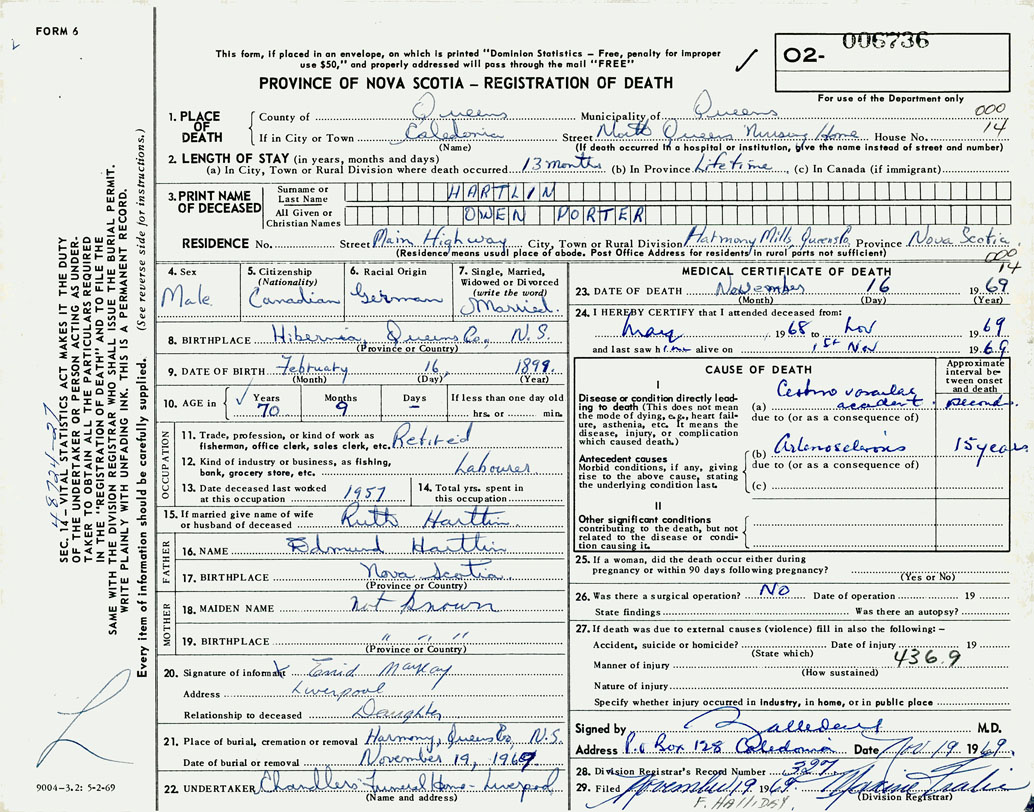 FORM 6
2
This form, if placed in an envelope, on which is printed "Dominion Statistics – Free, penalty for improper
use $50," and properly addressed will pass through the mail "FREE"
PROVINCE OF NOVA SCOTIA – REGISTRATION OF DEATH
O2- 006736
For use of the Department only
000
14
1. PLACE OF DEATH
County of Queens Municipality of Queens
If in City or Town Caledonia Street North Queens Nursing Home House No.
(Name) (If death occurred in a hospital or institution, give the name instead of street and number)
2. LENGTH OF STAY (in years, months and days)
(a) In City, Town or Rural Division where death occurred 13 months (b) In Province Lifetime (c) In Canada (if immigrant)
3. PRINT NAME OF DECEASED
Surname or Last Name HARTLIN
All Given or Christian Names OWEN PORTER
RESIDENCE No. Street Main Highway City, Town or Rural Division Harmony Mills, Queens Co, Province Nova Scotia
(Residence means usual place of abode. Post Office Address for residents in rural parts not sufficient)
000
14
4. Sex Male
5. Citizenship (Nationality) Canadian
6. Racial Origin German
7. Single, Married, Widowed or Divorced (write the word) Married
8. BIRTHPLACE Hibernia, Queens Co., N.S.
(Province or Country)
9. DATE OF BIRTH February 16, 1899
(Month) (Day) (Year)
10. AGE in Years 70 Months 9 Days - If less than one day old hrs. or min.
OCCUPATION
11. Trade, profession, or kind of work as fisherman, office clerk, sales clerk, etc. Retired
12. Kind of industry or business, as fishing, bank, grocery store, etc. Labourer
13. Date deceased last worked at this occupation 1957
14. Total yrs. spent in this occupation
15. If married give name of wife or husband of deceased Ruth Hartlin
FATHER
16. NAME Edmund Hartlin
17. BIRTHPLACE Nova Scotia
(Province or Country)
MOTHER
18. MAIDEN NAME Not Known
19. BIRTHPLACE " " "
(Province or Country)
20. Signature of informant
Address Liverpool
Relationship to deceased Daughter
21. Place of burial, cremation or removal Harmony, Queens Co, N.S.
Date of burial or removal November 19, 1969
22. UNDERTAKER Chandlers Funeral Home - Liverpool
(Name and address)
MEDICAL CERTIFICATE OF DEATH
23. DATE OF DEATH November 16 1969
(Month) (Day) (Year)
24. I HEREBY CERTIFY that I attended deceased from:
May 1968 to Nov 1969
and last saw him alive on 1st Nov 1969
CAUSE OF DEATH
Approximate interval between onset and death
I
Disease or condition directly leading to death (This does not mean the mode of dying, e.g., heart failure, asthenia, etc. It means the disease, injury, or complication which caused death.)
(a) accident seconds
due to (or as a consequence of)
Antecedent causes
Morbid conditions, if any, giving rise to the above cause, stating the underlying condition last.
(b) 15 years
due to (or as a consequence of)
(c)
II
Other significant conditions contributing to the death, but not related to the disease or condition causing it.
25. If a woman, did the death occur either during pregnancy or within 90 days following pregnancy?
(Yes or No)
26. Was there a surgical operation? NO Date of operation 19
State findings Was there an autopsy?
27. If death was due to external causes (violence) fill in also the following: –
Accident, suicide or homicide? Date of injury 19
(State which) 436.9
Manner of injury
(How sustained)
Nature of injury
Specify whether injury occurred in industry, in home, or in public place
Signed by M.D.
Address P.O Box 128 Caledonia Date Nov. 19 1969
28. Division Registrar's Record Number
29. Filed November 19 1969
(Division Registrar)
F. HALLIDAY
SEC. 14 – VITAL STATISTICS ACT MAKES IT THE DUTY
OF THE UNDERTAKER OR PERSON ACTING AS UNDER-
TAKER TO OBTAIN ALL THE PARTICULARS REQUIRED
IN THE "REGISTRATION OF DEATH" AND TO FILE THE
SAME WITH THE DIVISION REGISTRAR WHO SHALL ISSUE THE BURIAL PERMIT.
WRITE PLAINLY WITH UNFADING INK. THIS IS A PERMANENT RECORD.
Every item of information should be carefully supplied. (See reverse side for instructions.)
9004-3.2: 5-2-69